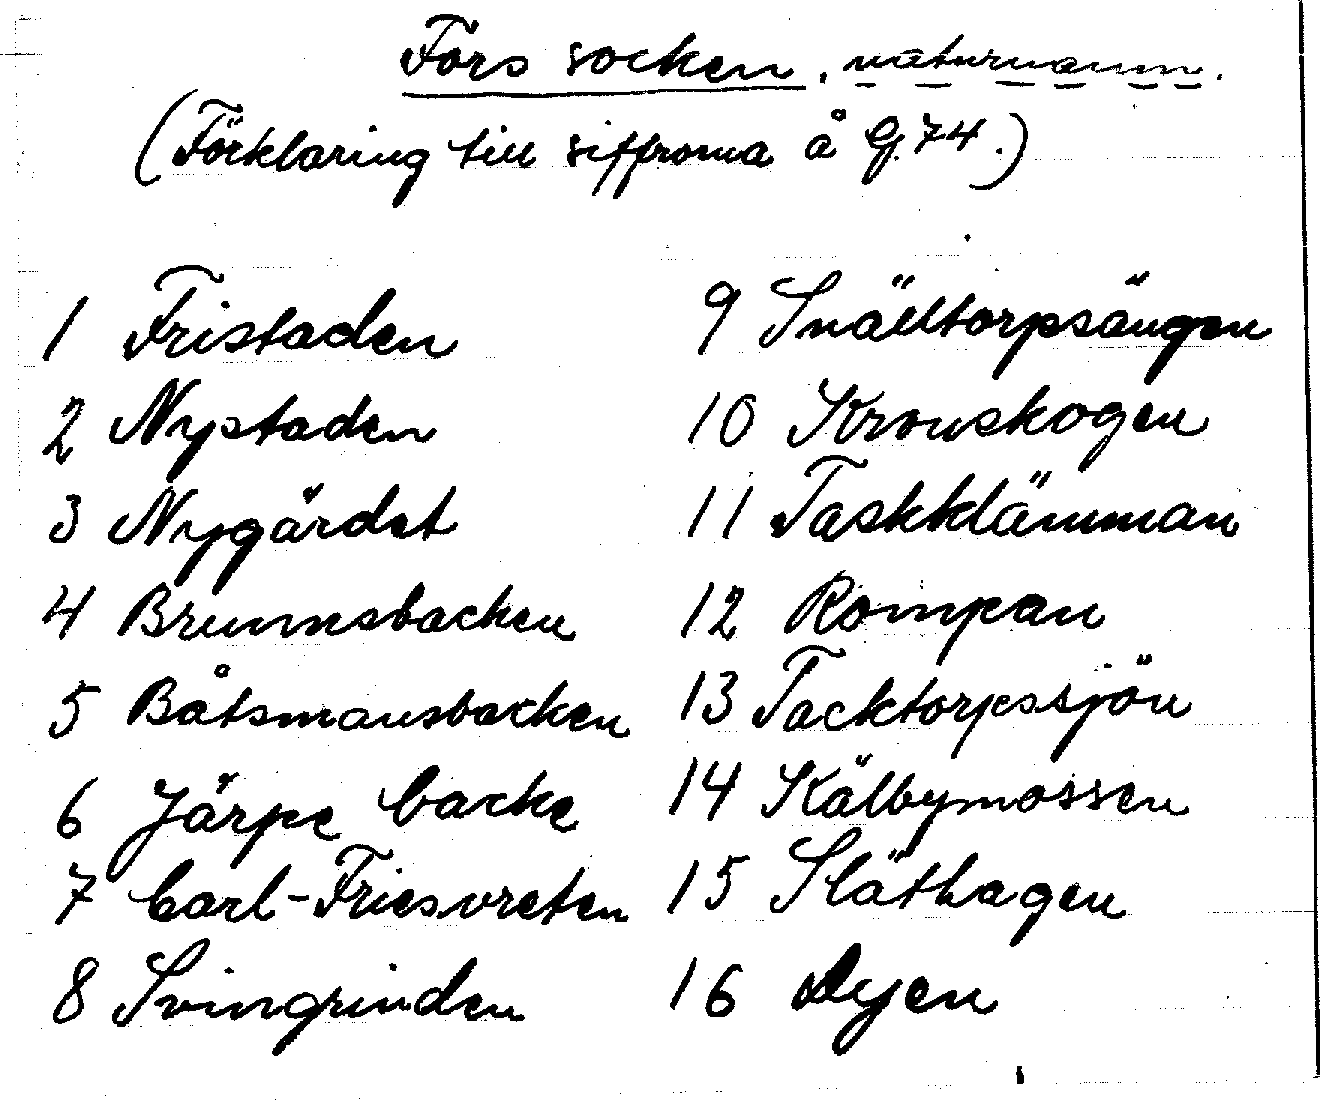 Fors socken, naturnamn.
(Förklaring till siffrorna å G. 74.)
1 Fristaden
2 Nystaden
3 Nygärdet
4 Brunnsbacken
5 Båtsmansbacken
6 Järpe backe
7 Carl-Friesvreten
8 Svingrinden
9 Snälltorpsängen
10 Kronskogen
11 Taskklämman
12 Rompan
13 Tacktorpssjön
14 Kälbymossen
15 Släthagen
16 Dyen